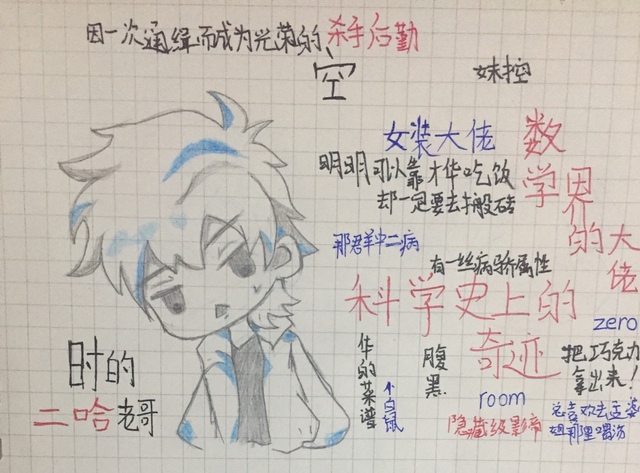 因一次通缉而成为光荣的杀手后勤
空
妹控
女装大佬
数学界的大佬
明明可以靠才华吃饭
却一定要去搬砖
那群中二病
有一丝病娇属性
科学史上的奇迹
zero
把巧克力拿出来！
时的
二哈老哥
华的菜谱
小白鼠
腹黑
room
隐藏级影帝
总喜欢去孟婆
姐那里喝汤